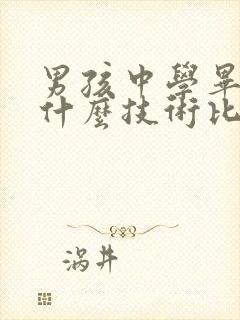 男孩中學畢
什麼技術比
涡井